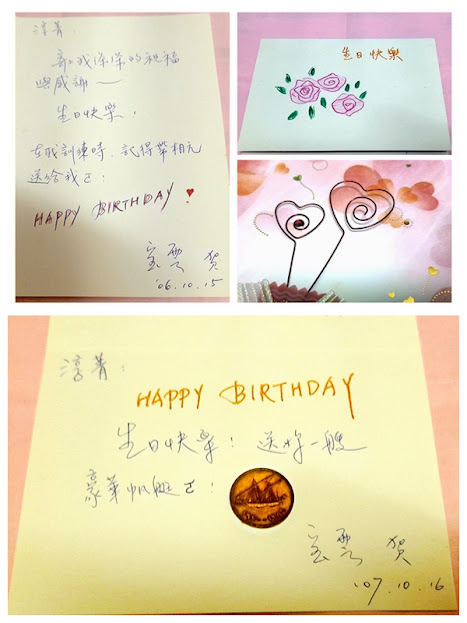 淳菁：
寄我深深的祝福
與感謝——
生日快樂,
在職訓練時, 記得帶相
送給我ㄛ：
HAPPY BIRTHDAY
宝雲 賀
'06.10.15
生日快樂
淳菁：
HAPPY BIRTHDAY
生日快樂！送妳一艘
豪華帆艇ㄛ：
宝雲 賀
'07.10.16